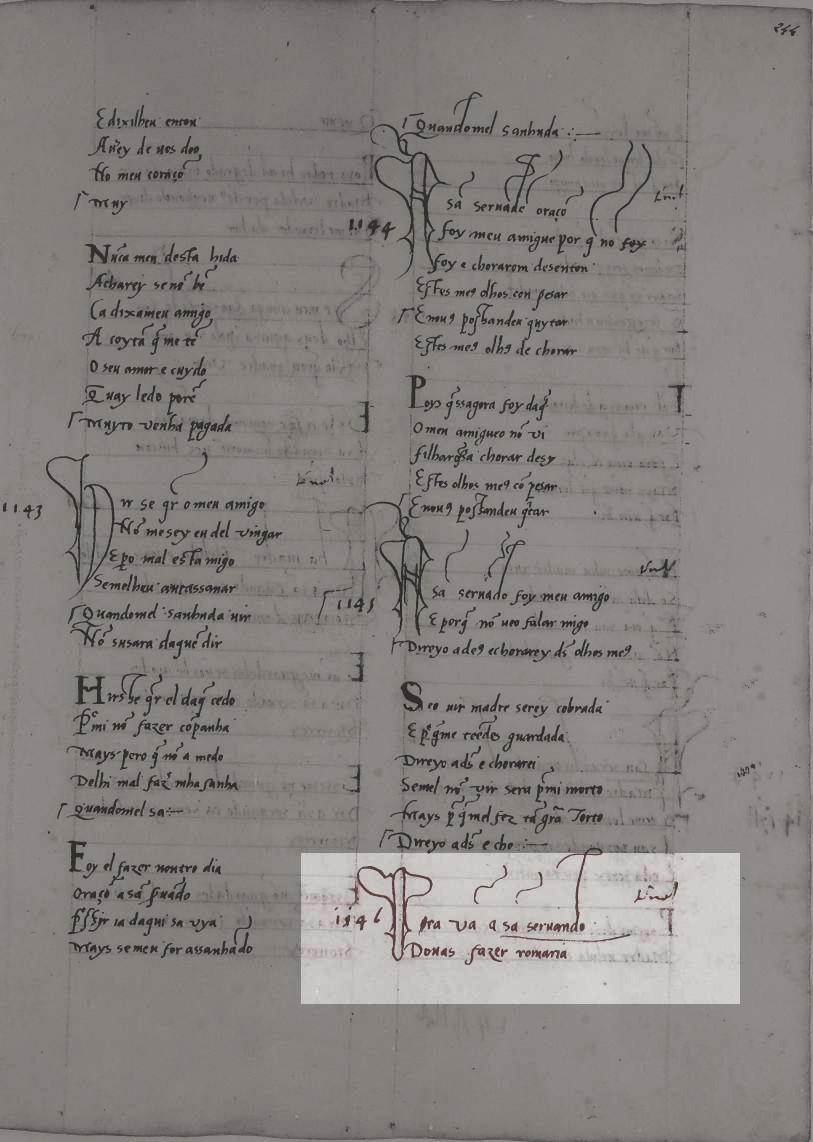 244
Edixilheu entou
Auey de uos doo
No meu coraçõ
Muy
Nũca meu desta hida
Acharey se nõ bẽ
Ca dixameu amigo
A coytã q̃ me tẽ
O seu amor e cuydo
Quay ledo porẽ
Muyto venha pagada
1143
Hir se q̃r o meu amigo
Nõ me sey eu del vingar
E pero mal esta migo
Semelheu antassanar
Quandomel sanhuda uir
Nõ susara daquẽ dir
Hirse q̃r el daq̃ cedo
P̃ mi nõ fazer cõpanha
Mays pero q̃ nõ a medo
Delhi mal faz̃ mha sanha
Quandomel sa
Foy el fazer noutro dia
Oraçõ a sã s̃uãdo
mays semeu for assanhado
Quandomel sanhuda
1144
A sã seruãde oraçõ
foy meu amigue por q̃ nõ foy
foy e chorarom desenton
Estes meꝯ olhos con pesar
Enouꝯ possandeu quytar
Estes meꝯ olhꝯ de chorar
Poys q̃ssagora foy daq̃
O meu amigueo nõ vi
filharõssa chorar desy
Estes olhos meꝯ cõ pesar
Enouꝯ possandeu q̃tar
1145
A sã seruãdo foy meu amigo
E porq̃ nõ ueo falar migo
Direyo a deꝯ echorarey dꝯ olhos meꝯ
Seo uir madre serey cobrada
E p̃q̃me teedes guardada
Direyo adꝯ e chorarei
Semel nõ vir sera p̃mi morto
Mays p̃q̃mel fez tã grã torto
Direyo adꝯ e cho
1146
Ora va a sa seruando
Donas fazer romaria